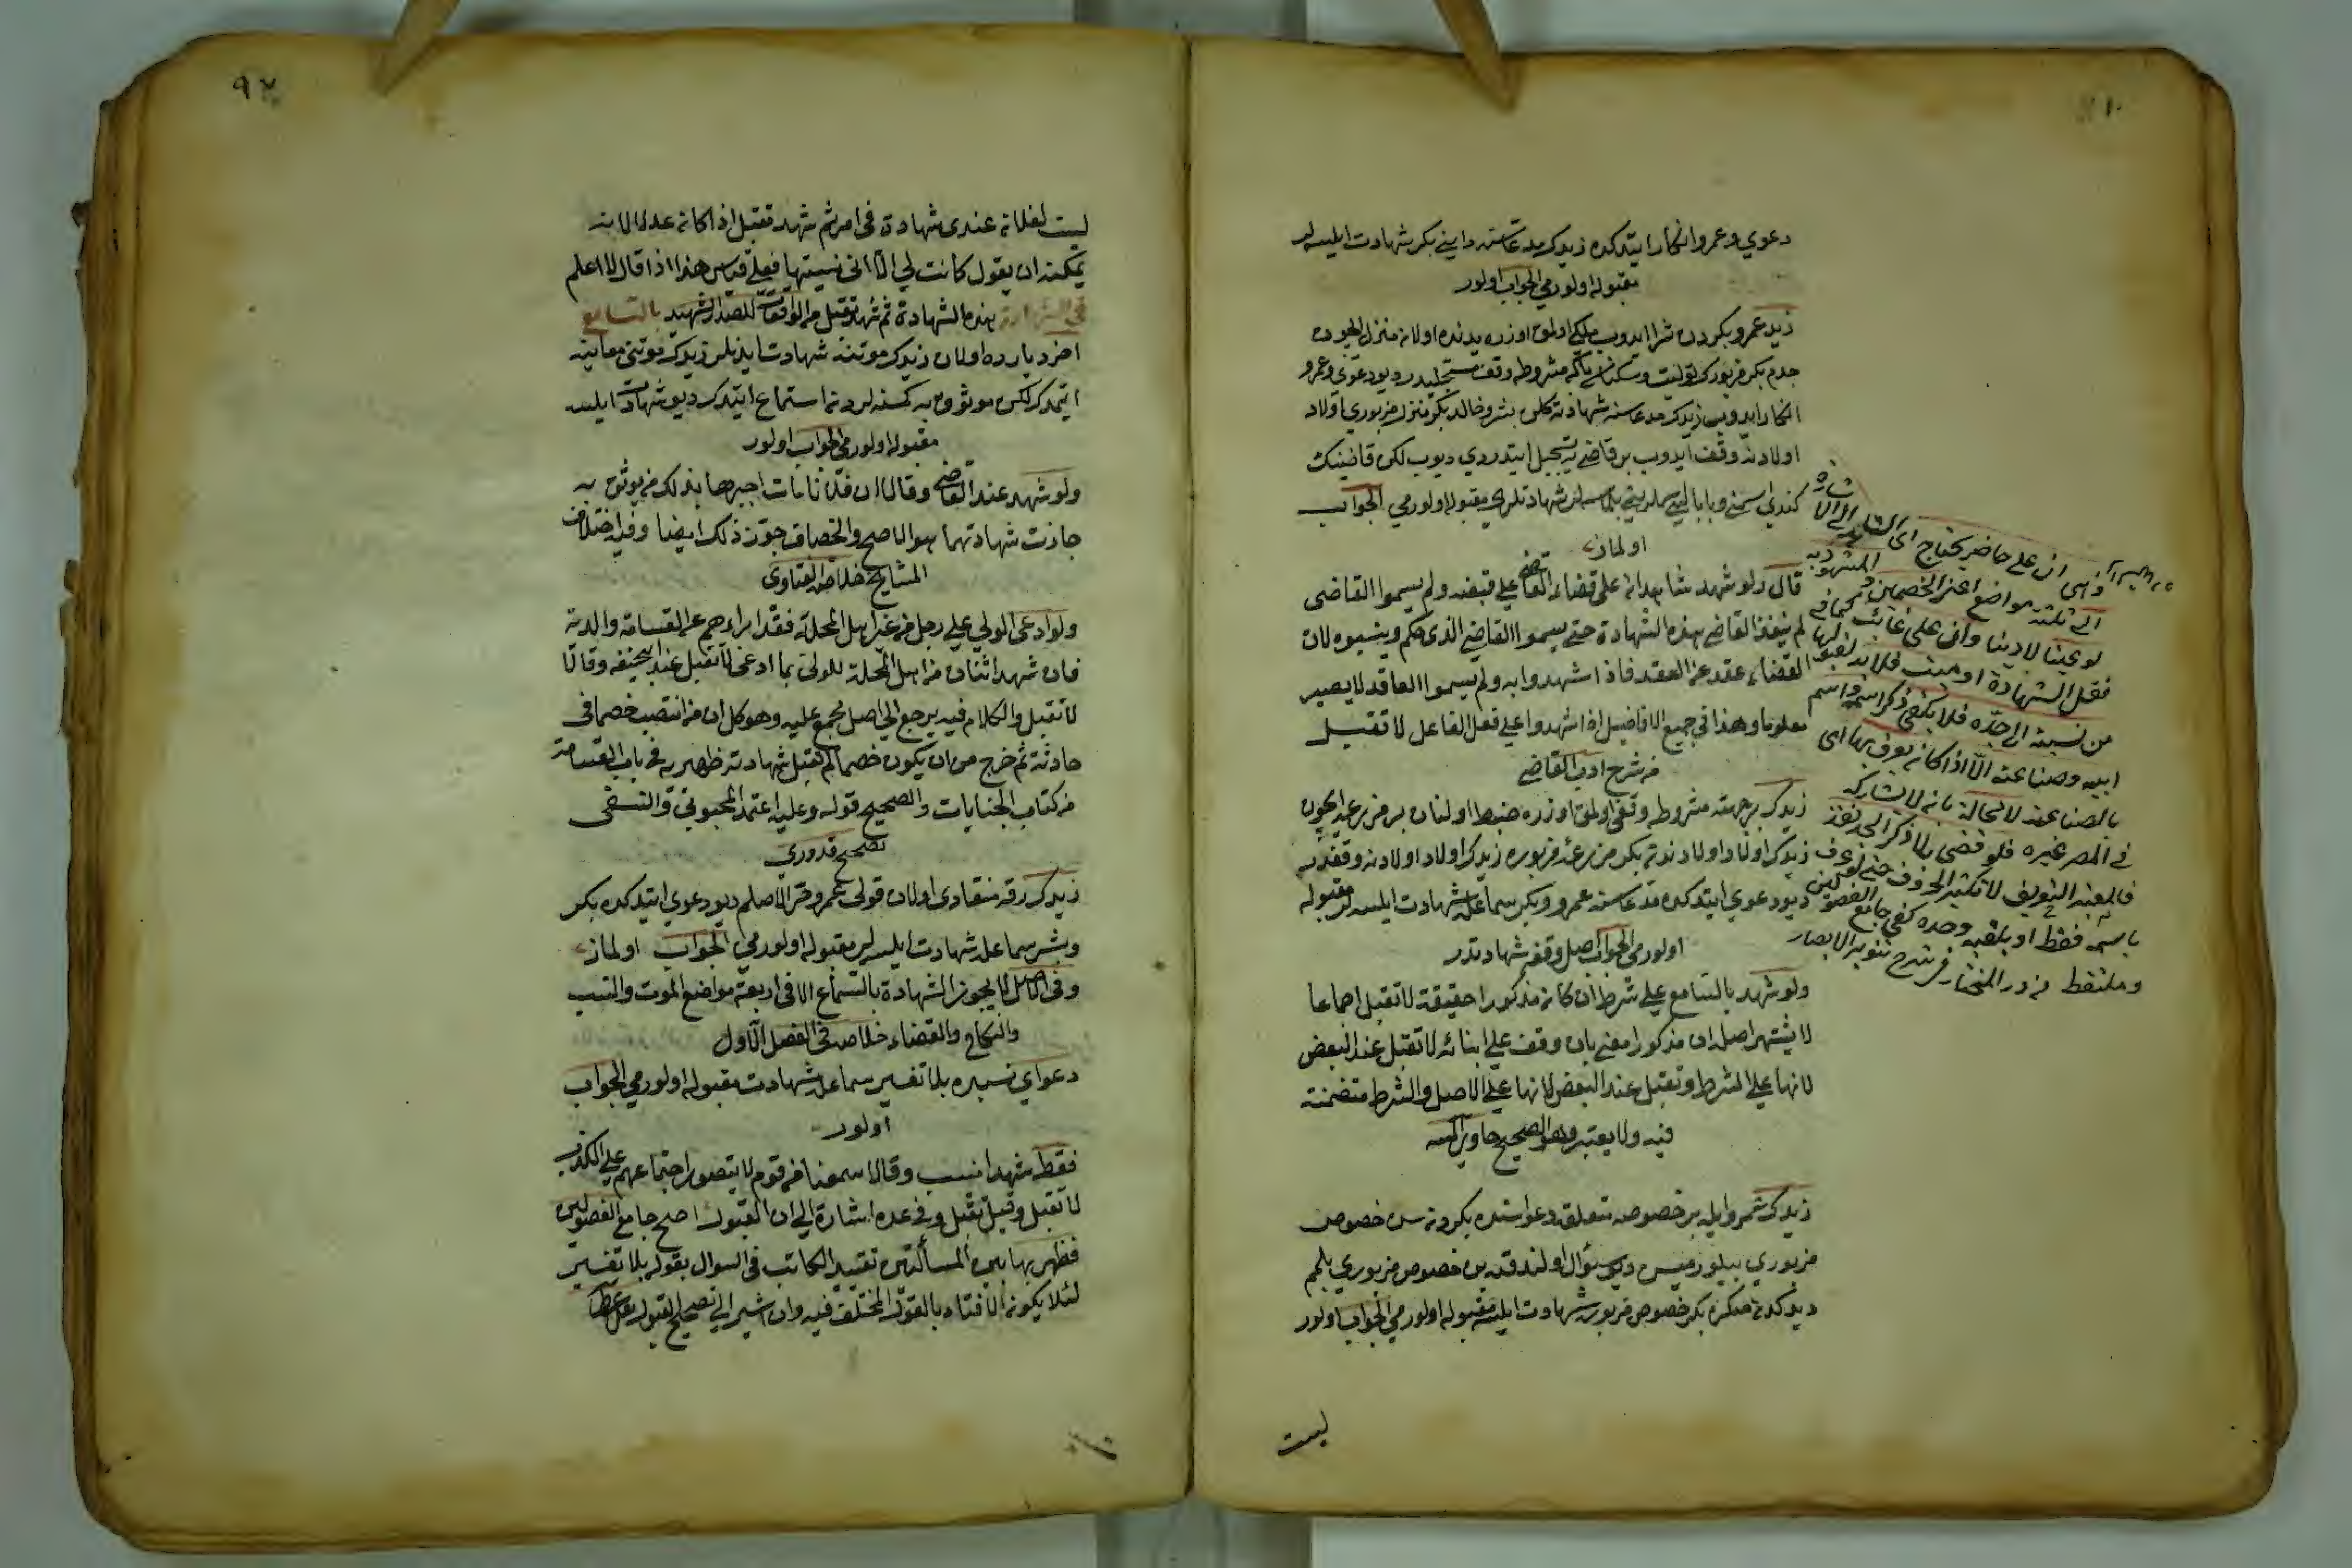 دعوي وعمرو انكار ايتدكده زيدك مدعاسنه دايني بكر شهادت ايليسه لر
مقبوله اولورمي الجواب اولور
زيد عمرو بكردن شرا ايدوب ملكي اولمق اوزره يدنده اولان منزل ايجون
جدم بكر مزبورك توليت وسكناسي مشروطه وقف ديو دعوي وعمرو
انكار ايدوب زيدك مدعاسنه شهادته كلن بشر وخالد بكر منزل مزبوري اولاد
اولادنه وقف ايدوب بر قاضي يه تسجيل ايتدردي ديوب لكن قاضينك
كندي اسمني وبابالري اسملريني بلمسه لر شهادتلري مقبوله اولورمي الجواب
اولماز
قال ولو شهد شاهدان على قضاء القاضي على قبضه ولم يسموا القاضي
لم ينفذ القاضي بهذه الشهادة حتى يسموا القاضي الذي حكم وينسبوه لان
القضاء عقد من العقد فاذا شهدوا به ولم يسموا العاقد لا يصير
معلوما وهذا في جميع الافاضيل اذا شهدوا على فعل الفاعل لا تقبل
من شرح ادب القاضي
زيدك بر جهته مشروطه وقفي اولمق اوزره ضبط اولنان بر مزرعه ايجون
زيدك اولاد اولادندن بكر مزرعه مزبوره زيدك اولاد اولادنه وقفدر
ديو دعوي ايتدكده مدعاسنه عمرو وبكر سماعله شهادت ايليسه لر مقبوله
اولورمي الجواب اصل وقفه شهادتدر
ولو شهد بالتسامع على شرط ان كان مذكورا حقيقة لا تقبل اجماعا
لا يشتهر اصل ان مذكورا معنى بان وقف على ابنائه لا تقبل عند البعض
لانها على الشرط وتقبل عند البعض لانها على الاصل والشرط متضمنة
فيه ولا يعتبر وهو الصحيح حاوي
زيدك عمرو ايله بر خصوصه متعلق دعواسنده بكر دن سن خصوص
مزبوري بيلورميسن ديو سؤال اولندقده بن خصوص مزبوري بلمم
ديدكدن صكره بكر خصوص مزبوره شهادت ايليسه مقبوله اولورمي الجواب اولور
ليست
وهي ان على حاضر يحتاج اي الشاهد الى الاشارة
الى ثلثة مواضع اعني الخصمين والمشهود به
لو عينا لا دينا وان على غائب كما في
نقل الشهادة او ميت فلا بد لقبولها
من نسبته الى جده فلا يكفي ذكر اسمه واسم
ابيه وصناعته الا اذا كان يعرف بها اي
بالصناعة لا محالة بان لا يشاركه
في المصر غيره فلو قضى بلا ذكر الجد نفذ
فالمعتبر التعريف لا تكثير الحروف حتى لو عرف
باسمه فقط او بلقبه وحده كفى جامع الفصولين
وملتقط من در المختار في شرح تنوير الابصار
٩٢
ليست لفلان عندي شهادة في امر ثم شهد تقبل اذا كان عدلا لانه
يمكنه ان يقول كانت لي الا اني نسيتها فعلى قياس هذا اذا قال لا اعلم
بهذه الشهادة ثم شهد تقبل من الواقعات للصدر الشهيد بالتسامع
اخر دياره اولان زيدك موتنه شهادت ايدنلر زيدك موتني معاينه
ايتمدك لكن موثوق به كمسنه لردن استماع ايتدك ديو شهادت ايليسه
مقبوله اولورمي الجواب اولور
ولو شهد عند القاضي وقالا ان فلانا مات اخبرنا بذلك من يوثق به
جازت شهادتهما هو الاصح والخصاف جوز ذلك ايضا وفيه اختلاف
المشايخ خلاصة الفتاوى
ولو ادعى الولي على رجل من غير اهل المحلة فقد ابراهم عن القسامة والدية
فان شهد اثنان من اهل المحلة للولي بما ادعى لا تقبل عند ابي حنيفه وقالا
لا تقبل والكلام فيه يرجع الى اصل مجمع عليه وهو كل ان من انتصب خصما في
حادثة ثم خرج من ان يكون خصما لم تقبل شهادته ظهيريه في باب القسامة
من كتاب الجنايات والصحيح قوله وعليه اعتمد المحبوبي والنسفي
تصحيح قدوري
زيدك رقه منقادى اولان قولى عمرو حر الاصلم ديو دعوي ايتدكده بكر
وبشر سماعله شهادت ايليسه لر مقبوله اولورمي الجواب اولماز
وفي الاصل لا يجوز الشهادة بالتسامع الا في اربعة مواضع الموت والنسب
والنكاح والقضاء خلاصه في الفصل الاول
دعواي نسبده بلا تفسير سماعله شهادت مقبوله اولورمي الجواب
اولور
فقط شهدا بنسب وقالا سمعنا من قوم لا يتصور اجتماعهم على الكذب
لا تقبل وقيل تقبل وفي عده اشارة الى ان القبول اصح جامع الفصولين
فظهر بهاتين المسألتين تقييد الكاتب في السوال بقوله بلا تفسير
لئلا يكون الافتاء بالقول المختلف فيه وان اشير الى تصحيح القبول